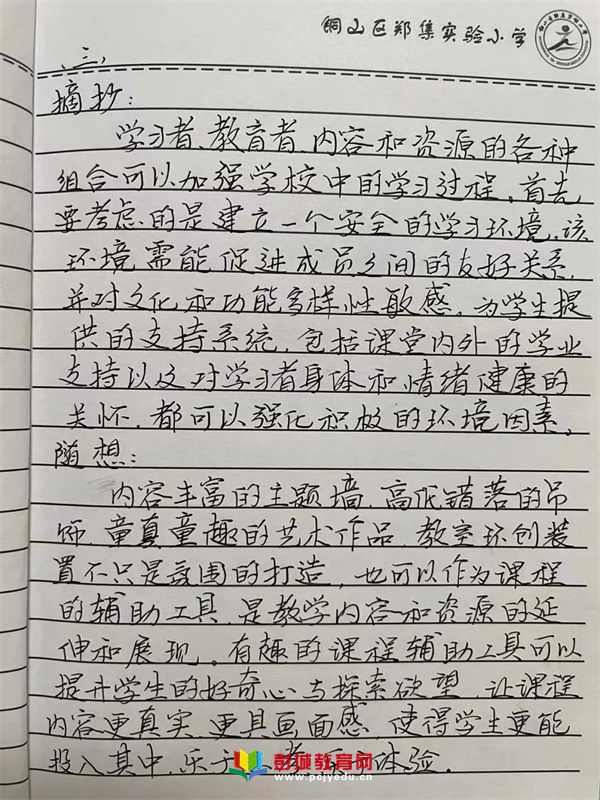 铜山区郑集实验小学
(三)
摘抄:
学习者、教育者、内容和资源的各种
组合可以加强学校中的学习过程。首先
要考虑的是建立一个安全的学习环境,该
环境需能促进成员之间的友好关系,
并对文化和功能多样性敏感。为学生提
供的支持系统,包括课堂内外的学业
支持以及对学习者身体和情绪健康的
关怀,都可以强化积极的环境因素。
随想:
内容丰富的主题墙,高低错落的吊
饰,童真童趣的艺术作品,教室环创装
置不只是氛围的打造,也可以作为课程
的辅助工具,是教学内容和资源的延
伸和展现。有趣的课程辅助工具可以
提升学生的好奇心与探索欲望,让课程
内容更真实、更具画面感,使得学生更能
投入其中,乐于 体验.
彭城教育网
www.pcjyedu.cn